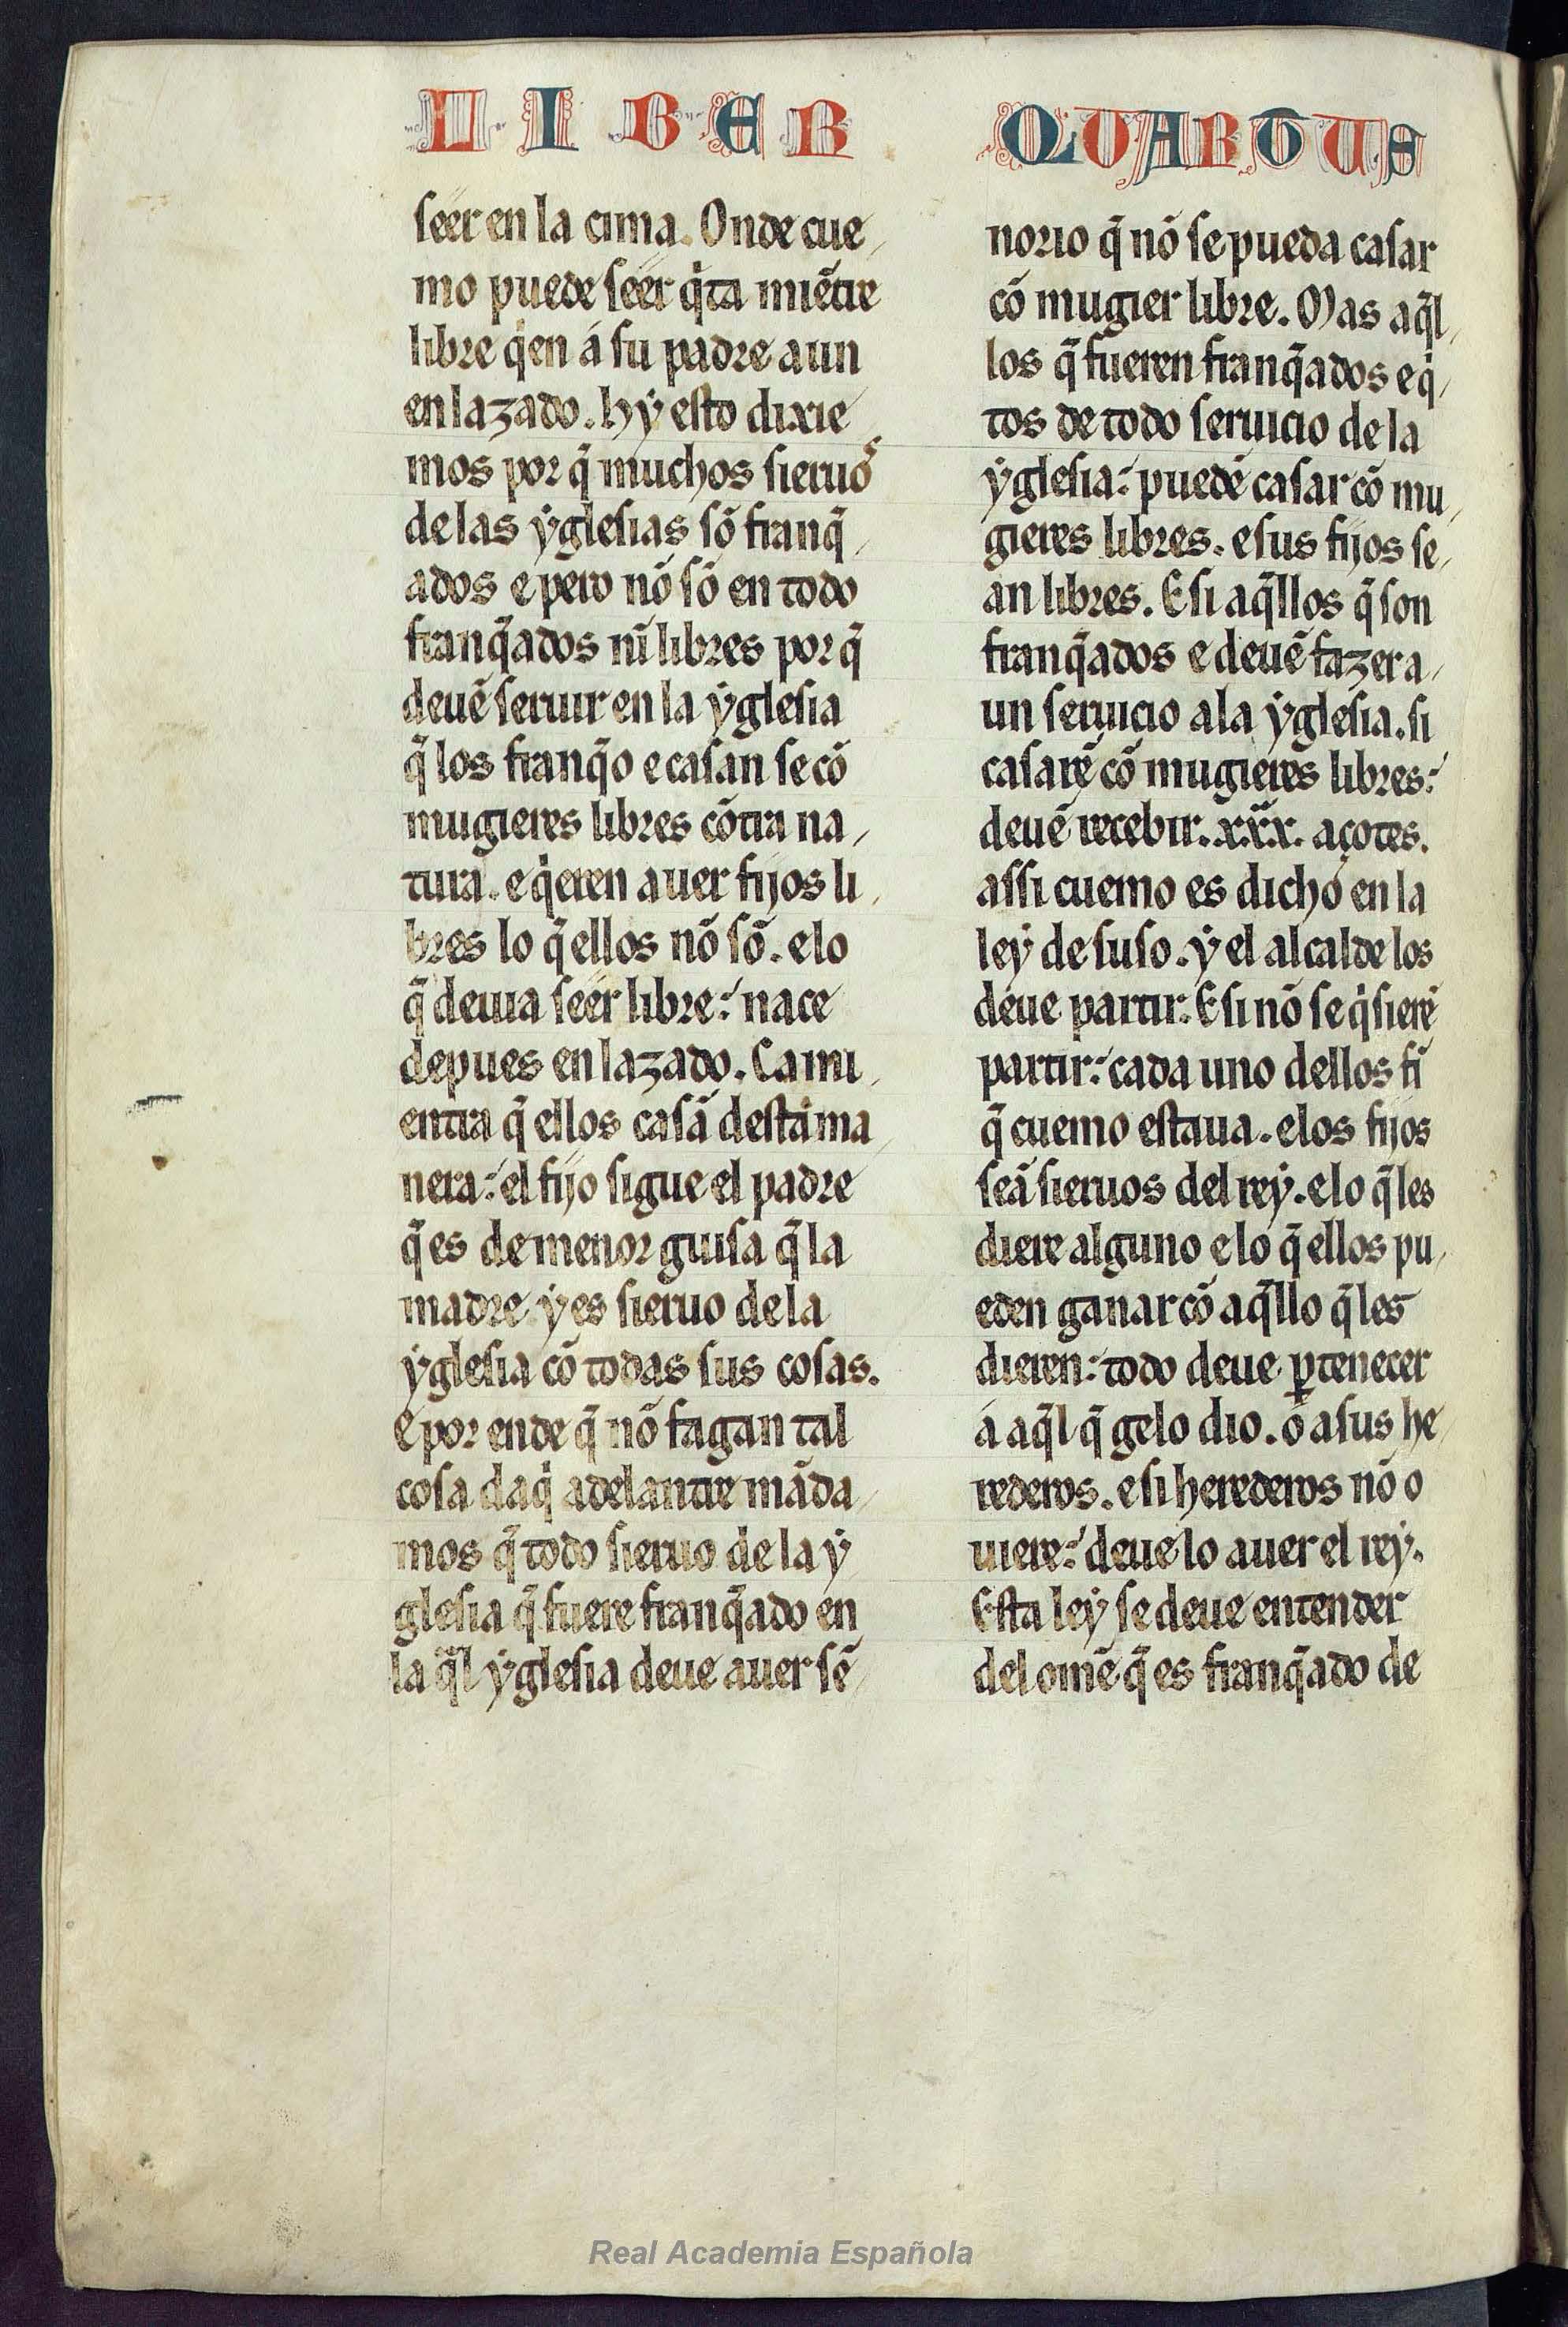 LIBER
seer en la cima. Onde cue
mo puede seer q̇ta muẽtre
libre q̇en á su padre aun
enlazado. hẏ esto dixie
mos por q̃ muchos sieruoˢ
delas ẏglesias sõ franq̃
ados e pero nõ sõ en todo
franq̃ados nĩ libres por q̃
deuẽ seruir en la ẏglesia
q̃ los franq̃o e casan se cõ
mugieres libres cõtra na
tura. e q̇eren auer fijos li
bres lo q̃ ellos nõ sõ. elo
q̃ deuia seer libre: nace
depues enlazado. Ca mi
entra q̃ ellos casã desta ma
nera: el fijo sigue el padre
q̃ es de menor guisa q̃ la
madre. ẏ es sieruo de la
ẏglesia cõ todas sus cosas.
E por ende q̃ nõ fagan tal
cosa daq̇ adelantre mãda
mos q̃ todo sieruo de la ẏ
glesia q̃ fuere franq̃ado en
la q̃l ẏglesia deue auer sẽ
QUARTUS
norio q̃ nõ se pueda casar
cõ mugier libre. Mas aq̃l
los q̃ fueren franq̃ados e q̇
tos de todo seruicio de la
ẏglesia: puedẽ casar cõ mu
gieres libres. e sus fijos se
an libres. E si aq̃llos q̃ son
franq̃ados e deuẽ fazer a
un seruicio a la ẏglesia. si
casarẽ cõ mugieres libres:
deuẽ recebir. xxx. açotes.
assi cuemo es dicho en la
leẏ de suso. ẏ el alcalde los
deue partir. E si nõ se q̇sierẽ
partir: cada uno dellos fi
q̃ cuemo estaua. e los fijos
seã sieruos del reẏ. e lo q̃ les
diere alguno e lo q̃ ellos pu
eden ganar cõ aq̃llo q̃ les
dieren: todo deue ꝑtenecer
á aq̃l q̃ gelo dio. o a sus he
rederos. e si herederos nõ o
uiere: deue lo auer el reẏ.
Esta leẏ se deue entender
del omẽ q̃ es franq̃ado de
Real Academia Española